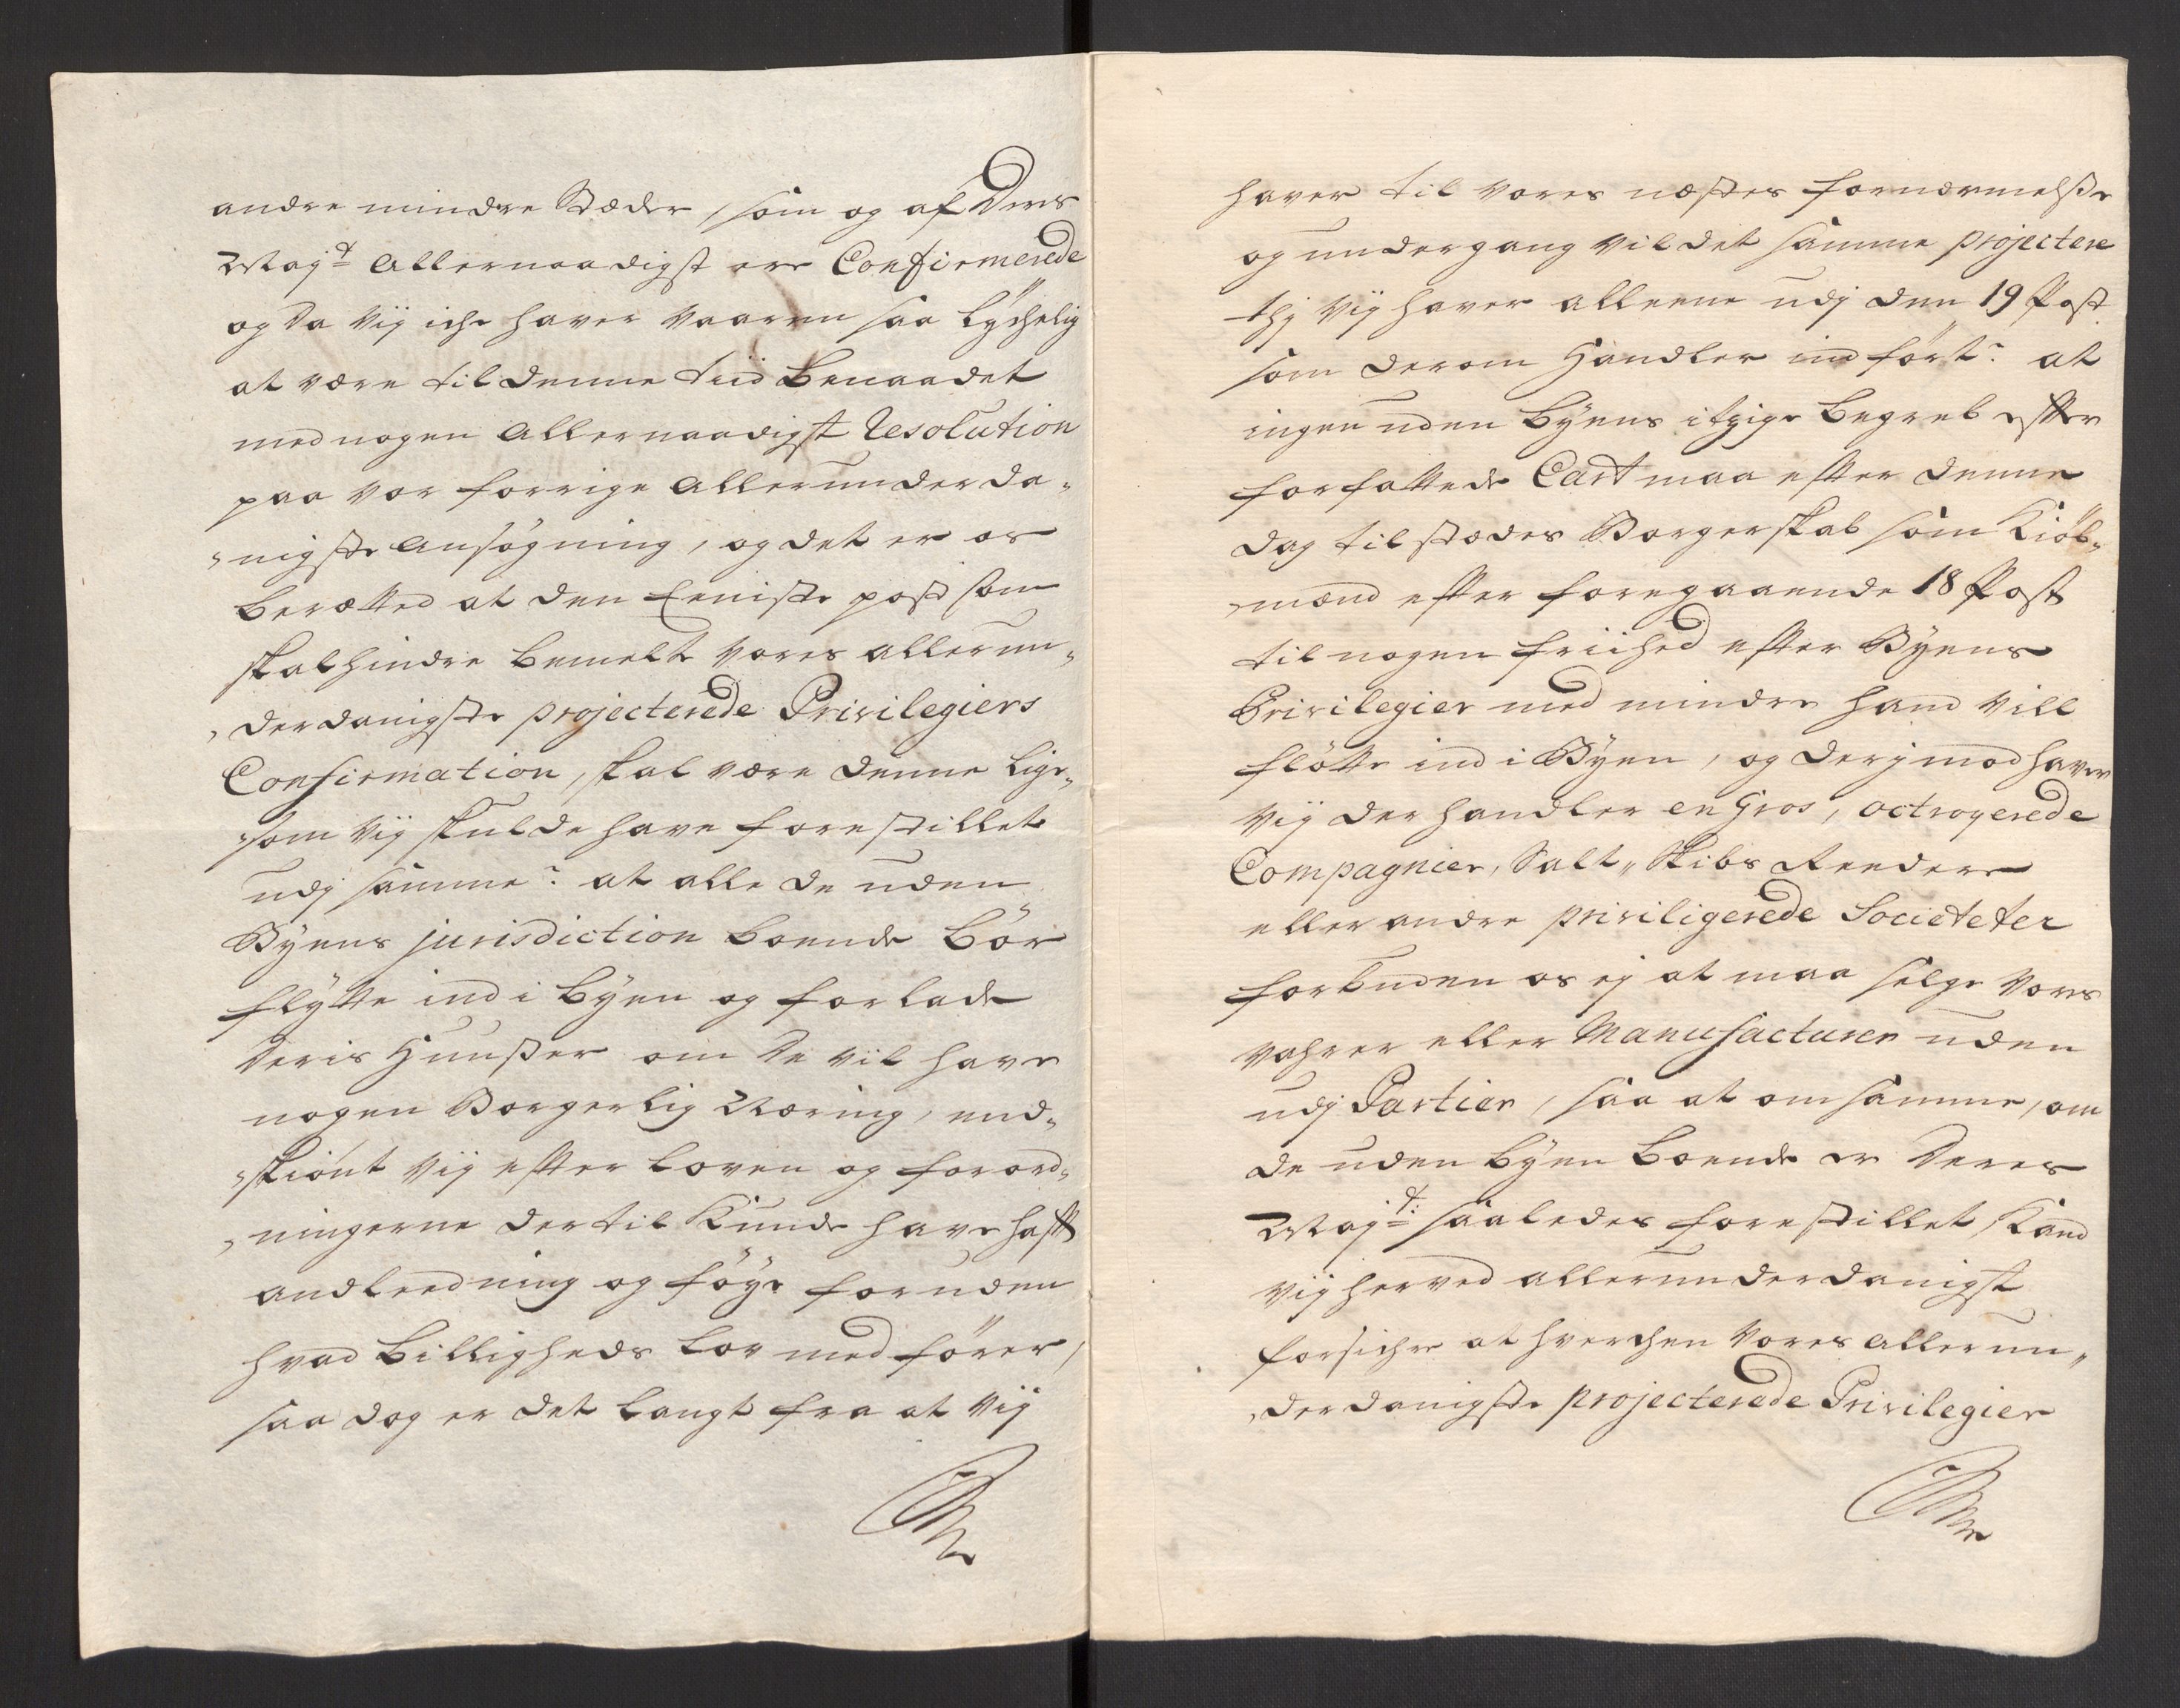 andre mindre Stæder, som og af Ders
Mayt Allernaadigst ere Confirmerede
og da vij iche haver vaaren saa lychelig
at være til denne tiid Benaadet
med nogen Allernaadigst Resolution
paa vor forrige Allerunderda„
„nigste Ansögning, og det er os
berætted at den Eeniste post som
skal hindre bemelte Vores allerun„
„derdanigste projecterede Privilegiers
Confirmation, skal være denne lige„
„som vij skulde have forestillet
udj samme: at alle de uden
Byens jurisdiction boende bör
flytte ind i byen og forlade
deris Huußer om de vil have
nogen Borgerlig Næring, end„
„skiönt vij efter loven og forord„
„ningerne dertil kunde have hafft
andleedning og föye foruden
hvad billigheds lov medförer,
saa dog er det langt fra at vij
haver til vores næstes fornærmelße
og undergang vildet samme projectere
thj vij haver alleene udj den 19 Post
som derom handler indfört: at
ingen uden byens itzige begreb efter
forfattede Cart maa efter denne
dag tilstædes Borgerskab som Kiöb„
„mænd efter foregaaende 18 Post
til nogen friihed efter Byens
Privilegier med mindre hand vill
flötte ind i Byen, og derjmod haver
vij der handler en Gros, octroyerede
Compagnier, Salt„ Skibs Reedere
eller andre priviligerede Societeter
forbuden os ej at maa selge vores
vahrer eller Manufacturer uden
udj Partier, saa at om samme, om
de uden byen boende er Deres
Mayt: saaledes forestillet, kand
vij herved allerunderdanigst
forsichre at hverchen vores allerun„
„derdanigste projecterede Privilegier